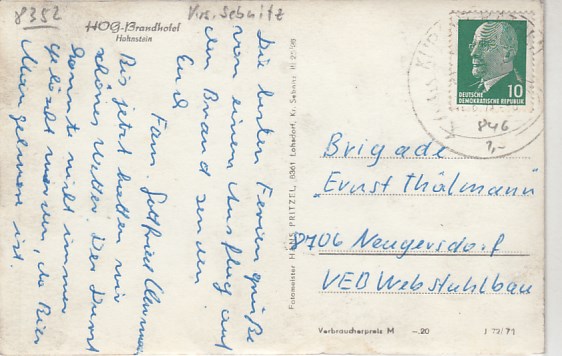 8352
Krs. Sebnitz
HOG-Brandhotel
Hohnstein
Die besten Feriengrüße
von einem Ausflug auf
den Brand senden
Euch
Fam. Gottfried
Bis jetzt hatten wir
schönes Wetter. Der Durst
konnte nicht immer
gelöscht werden, da Bier
Mangelware ist.
Fotomeister HANS PRITZEL, 8361 Lohsdorf, Kr. Sebnitz
10
DEUTSCHE
DEMOKRATISCHE REPUBLIK
846
1,-
Brigade
"Ernst Thälmann"
8706 Neugersdorf
VEB Webstuhlbau
Verbraucherpreis M -.20